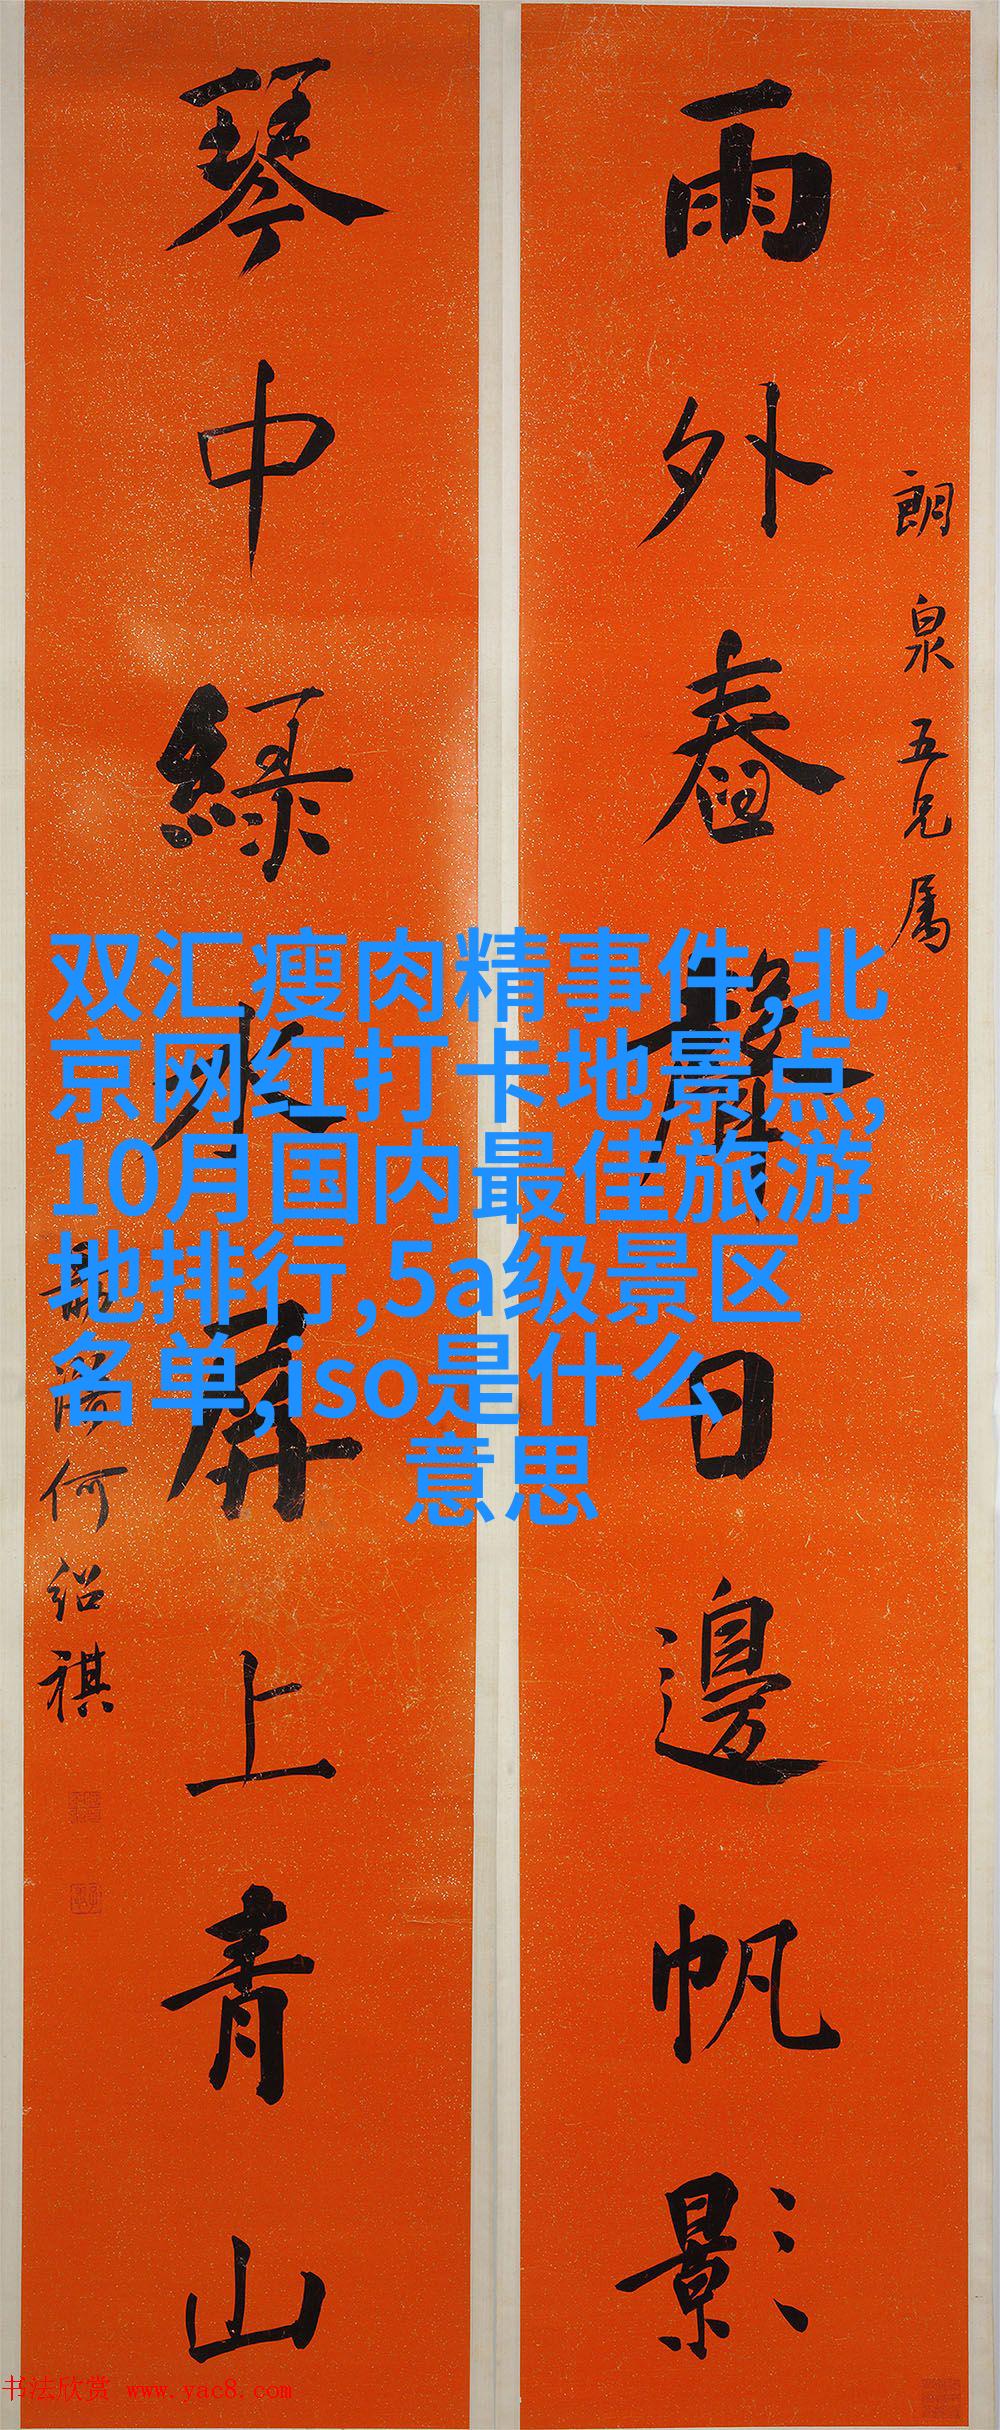 朗泉五兄属
雨外舂聲日邊帆影
琴中綠水屏上青山
何紹祺
双汇瘦肉精事件,北
京网红打卡地景点,
10月国内最佳旅游
地排行,5a级景区
名单,iso是什么
意思
书法欣赏 www.yac8.com